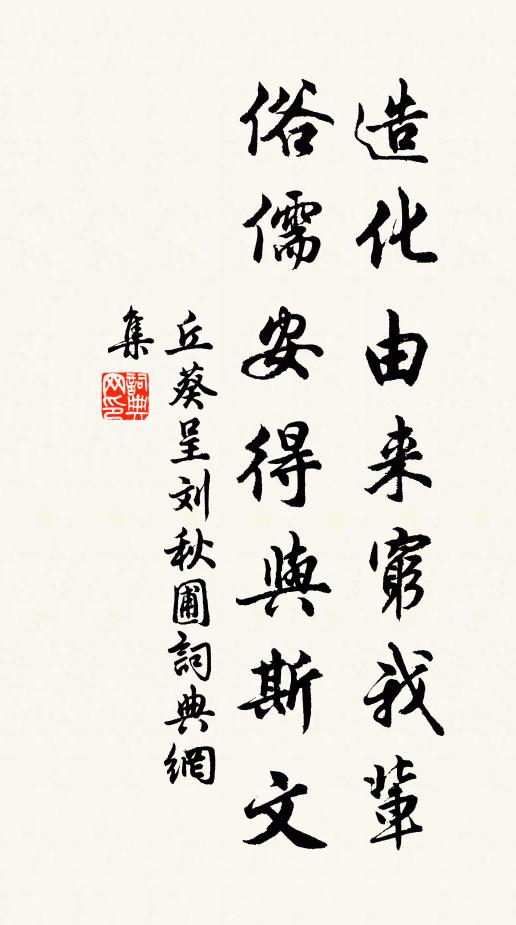 造化由来窮我輩
俗儒安得與斯文
丘葵呈刘秋圃詞典網
集
詞典
网印